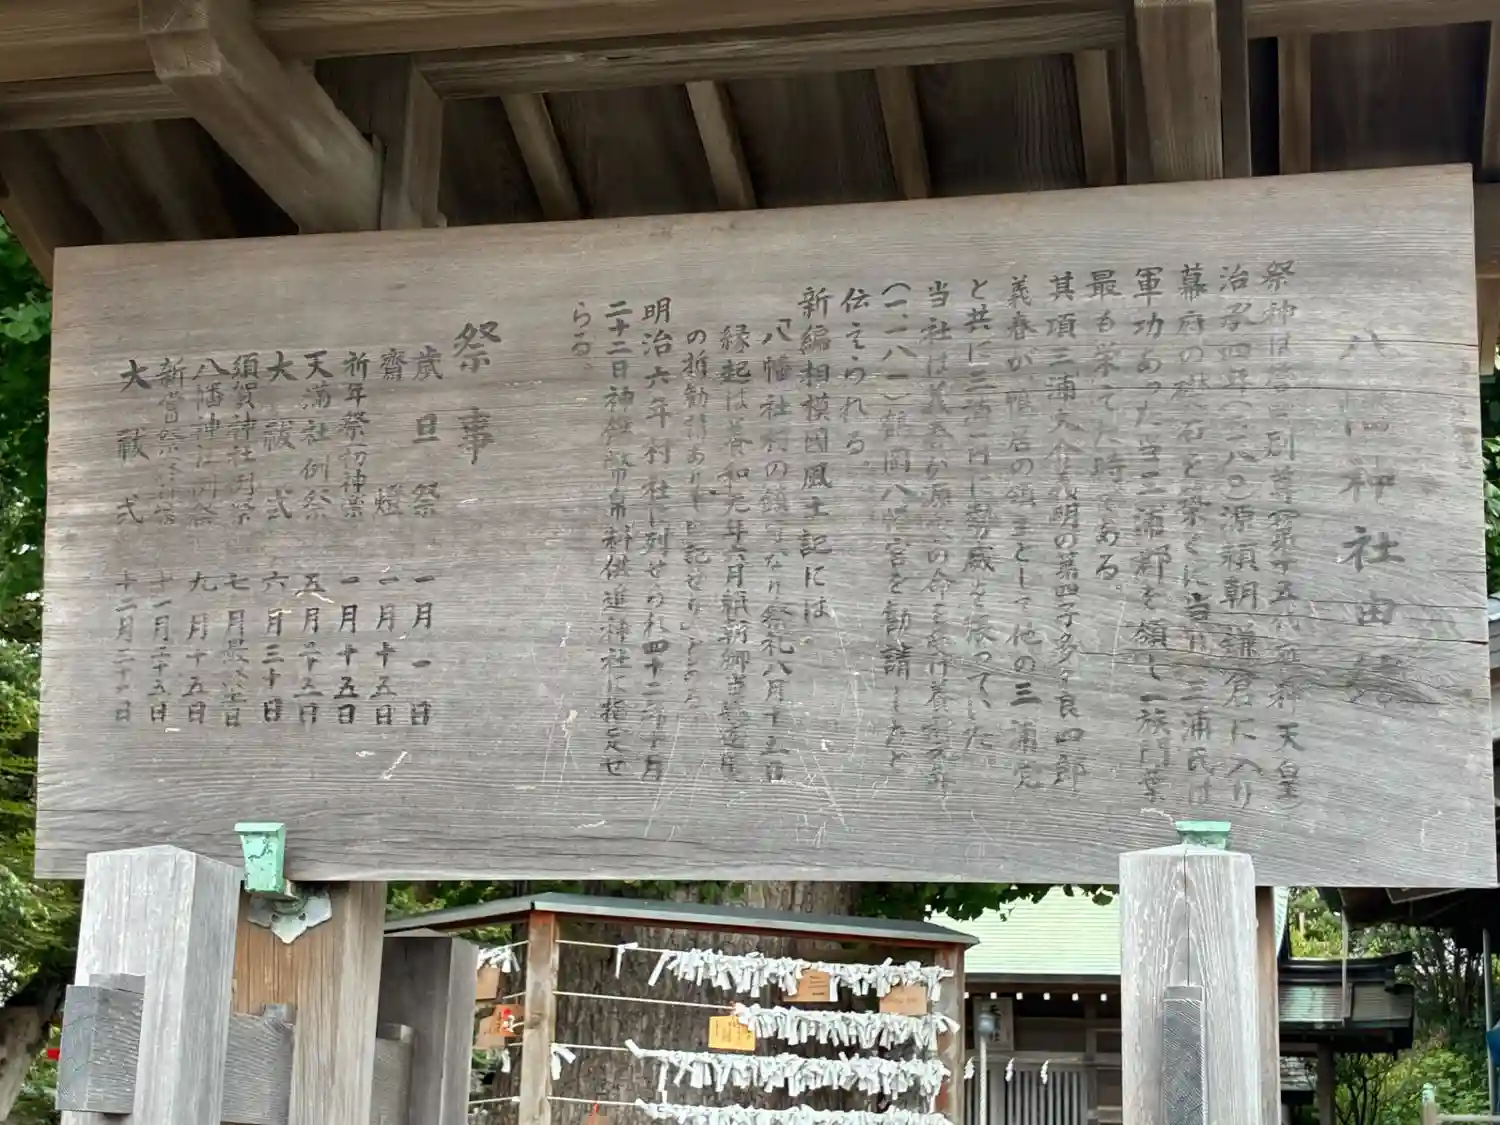 八幡神社由緒
祭神は誉田別尊(第十五代応神天皇)
治承四年(一一八〇)源頼朝鎌倉に入り
幕府の礎石を築くに当り三浦氏は
軍功あった当三浦郡を領し一族門葉
最も栄えた時である。
其項三浦大介義明の第四子多々良四郎
義春が鴨居の領主として他の三浦党
と共に三浦一円に勢威を張っていた。
当社は義春が源氏の命を受け養和元年
(一一八一)鶴岡八幡宮を勧請したと
伝えられる。
新編相模国風土記には
「八幡社村の鎮守なり祭礼八月十五日
縁起は養和元年六月
の折勧請ありと記せり」とある。
明治六年村社に列せられ四十二年十月
二十二日神饌幣帛料供進神社に指定せ
らる。
祭事
歳旦祭 一月一日
齋燈 一月十五日
祈年祭初神楽 一月十五日
天満社例祭 五月二十五日
大祓式 六月三十日
須賀神社例祭 七月最
八幡神社例祭 九月十五日
新嘗祭 十一月二十五日
大祓式 十二月二十